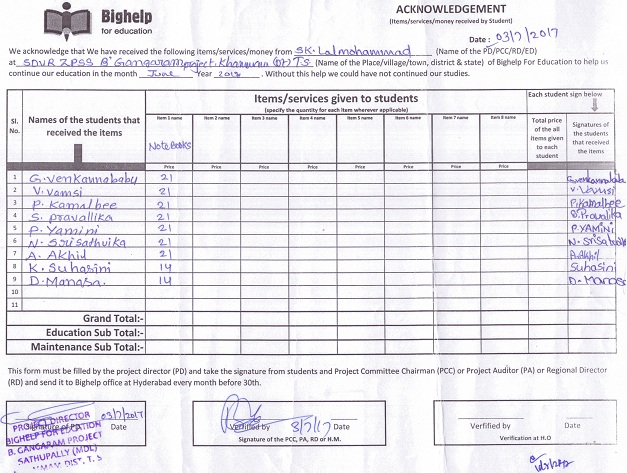 Bighelp
for education
ACKNOWLEDGEMENT
(Items/services/money received by Student)
Date : 03/7/2017
We acknowledge that We have received the following items/services/money from SK. Lalmohammad (Name of the PD/PCC/RD/ED)
at SDUR ZPSS B' Gangaram project. Khammam (Dt) T.S (Name of the Place/village/town, district & state) of Bighelp For Education to help us
continue our education in the month June Year 2018. Without this help we could have not continued our studies.
Sl. No.
Names of the students that received the items
Items/services given to students
(specify the quantity for each item wherever applicable)
Each student sign below
Item 1 name Item 2 name Item 3 name Item 4 name Item 5 name Item 6 name Item 7 name Item 8 name
Note Books
Total price of the all items given to each student
Signatures of the students that received the items
Price Price Price Price Price Price Price Price
1 G.venkannababu 21 G.venkannababu
2 V.vamsi 21 V.Vamsi
3 P. Kamalhee 21 P.Kamalhee
4 S. pravallika 21 S.Pravalika
5 P. Yamini 21 P.YAMINI
6 N. Srisathvika 21 N. Srisathvika
7 A. Akhil 21 A.Akhil
8 K. Suhasini 14 Suhasini
9 D. Manasa. 14 D. Manasa
10
11
Grand Total:-
Education Sub Total:-
Maintenance Sub Total:-
This form must be filled by the project director (PD) and take the signature from students and Project Committee Chairman (PCC) or Project Auditor (PA) or Regional Director
(RD) and send it to Bighelp office at Hyderabad every month before 30th.
03/7/2017
Signature of PD Date
PROJECT DIRECTOR
BIGHELP FOR EDUCATION
B. GANGARAM PROJECT
SATHUPALLY (MDL)
DIST. T. S
Verified by 3/7/17 Date
Signature of the PCC, PA, RD or H.M.
Verfified by Date
Verification at H.O